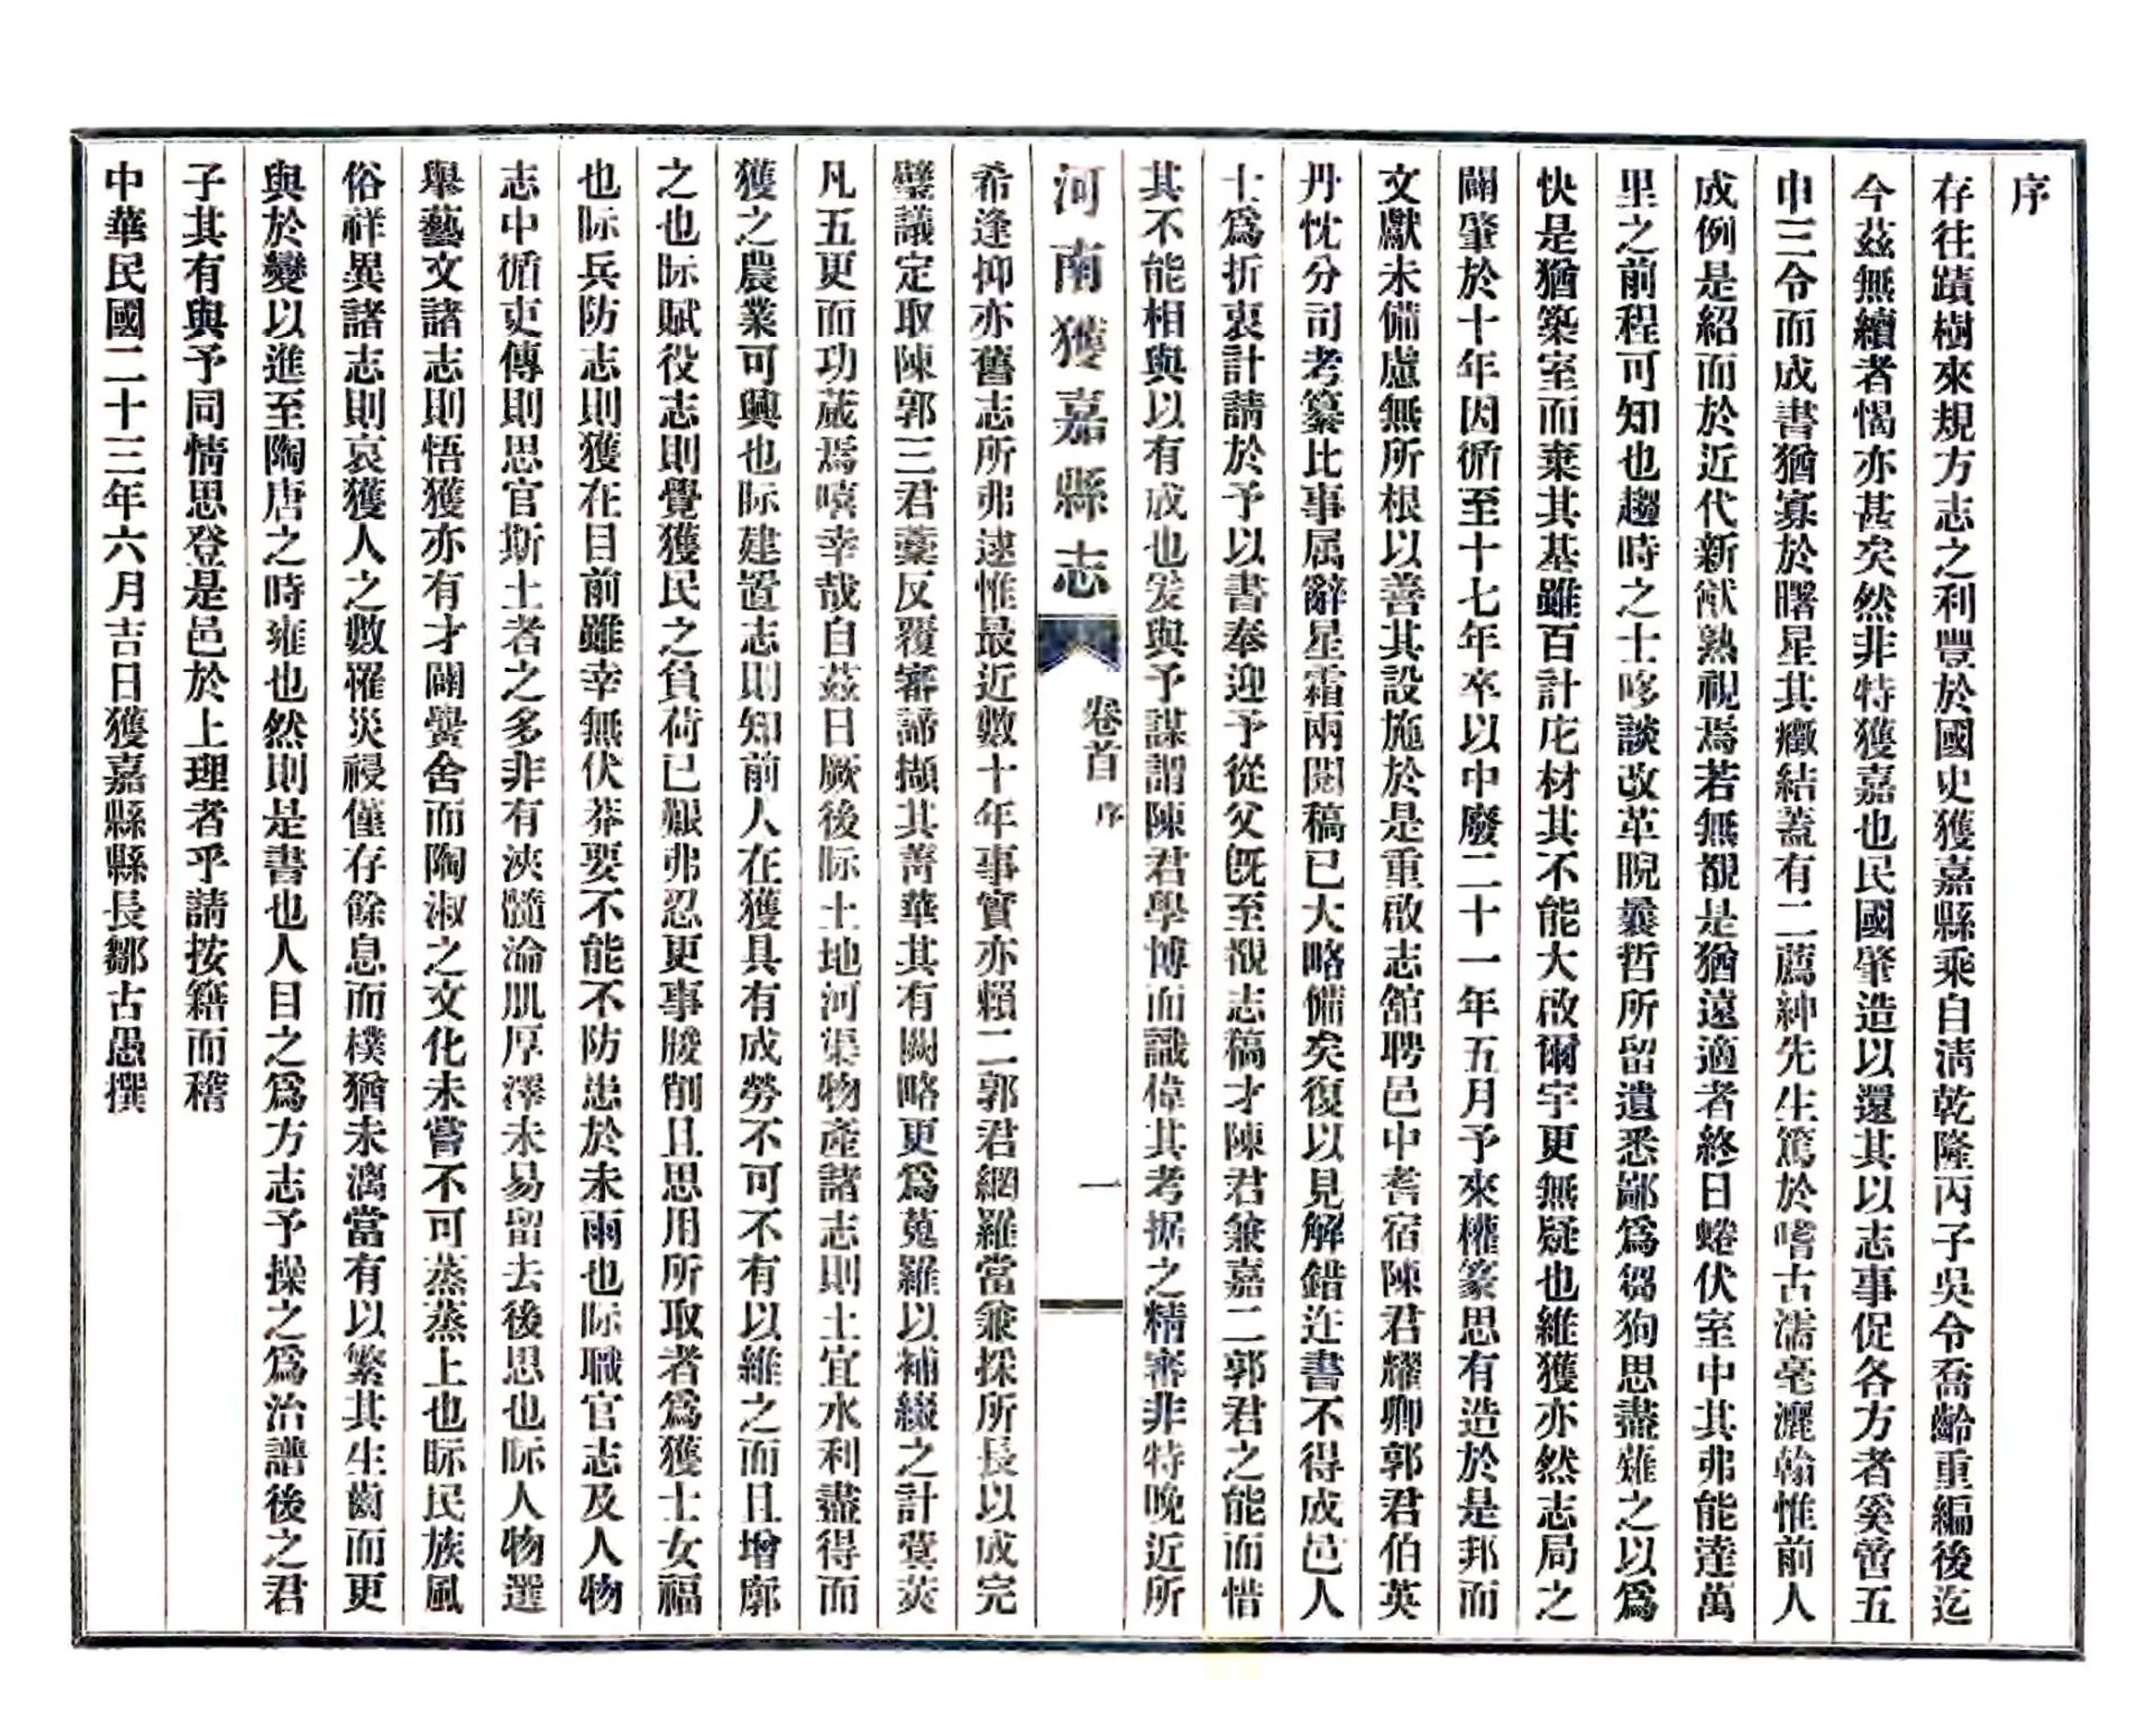 序
存往蹟樹來規方志之利豐於國史獲嘉縣乘自淸乾隆丙子吳令喬齡重編後迄
今茲無續者愒亦甚矣然非特獲嘉也民國肇造以還其以志事促各方者奚啻五
申三令而成書猶寡於曙星其癥結蓋有二薦紳先生篤於嗜古濡毫灑翰惟前人
成例是紹而於近代新猷熟視焉若無覩是猶遠適者終日蜷伏室中其弗能達萬
里之前程可知也趨時之士哆談改革睨曩哲所留遺悉鄙爲芻狗思盡薙之以爲
快是猶築室而棄其基雖百計庀材其不能大啟爾宇更無疑也維獲亦然志局之
闢肇於十年因循至十七年卒以中廢二十一年五月予來權篆思有造於是邦而
文獻未備慮無所根以善其設施於是重啟志舘聘邑中耆宿陳君耀卿郭君伯英
丹忱分司考纂比事属辭星霜兩閱稿已大略備矣復以見解錯迕書不得成邑人
士爲折衷計請於予以書奉迎予從父旣至覩志稿才陳君兼嘉二郭君之能而惜
其不能相與以有成也发與予謀謂陳君學博而識偉其考据之精審非特晚近所
河南獲嘉縣志 卷首 序 一
希逢抑亦舊志所弗逮惟最近數十年事實亦賴二郭君網羅當兼採所長以成完
璧議定取陳郭三君藁反覆審諦擷其菁華其有闕略更爲蒐羅以補綴之計蓂莢
凡五更而功蕆焉嘻幸哉自茲日厥後眎土地河渠物產諸志則土宜水利盡得而
獲之農業可興也眎建置志則知前人在獲具有成勞不可不有以維之而且增廓
之也眎賦役志則覺獲民之負荷已艱弗忍更事朘削且思用所取者爲獲士女福
也眎兵防志則獲在目前雖幸無伏莽要不能不防患於未雨也眎職官志及人物
志中循吏傳則思官斯土者之多非有浹髓淪肌厚澤未易留去後思也眎人物選
舉藝文諸志則悟獲亦有才闢黌舍而陶淑之文化未嘗不可蒸蒸上也眎民族風
俗祥異諸志則哀獲人之數罹災祲僅存餘息而樸猶未漓當有以繁其生齒而更
與於變以進至陶唐之時雍也然則是書也人目之爲方志予操之爲治譜後之君
子其有與予同情思登是邑於上理者乎請按籍而稽
中華民國二十三年六月吉日獲嘉縣縣長鄒古愚撰